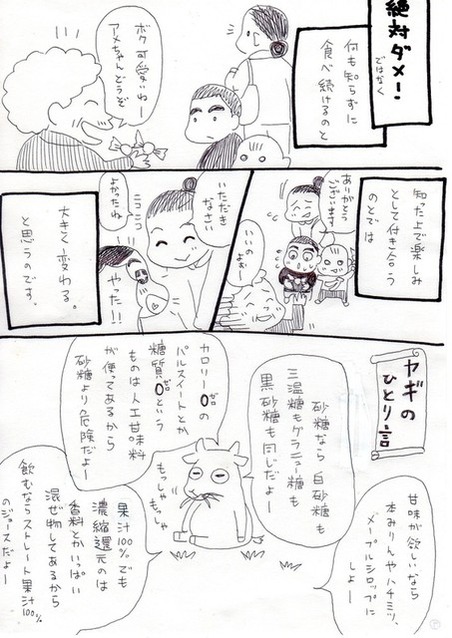 絶対ダメ!
ではなく
何も知らずに
食べ続けるのと
ボク可愛いわー
アメちゃんどうぞ
知った上で楽しみ
として付き合う
のとでは
ありがとう
ございます
いいのよぉー
いただき
なさい
ニコニコ
よかったね
やった!!
大きく変わる。
と思うのです。
ヤギの
ひとり言
砂糖なら白砂糖も
三温糖もグラニュー糖も
黒砂糖も同じだよー
カロリー0ゼロの
パルスイートとか
糖質0ゼロという
ものは人工甘味料
が使ってあるから
砂糖より危険だよー
もっしゃ
もっしゃ
甘味が欲しいなら
本みりんやハチミツ、
メープルシロップに
しよー
果汁100%でも
濃縮還元のは
香料とかいっぱい
混ぜ物してあるから
飲むならストレート果汁100%
のジュースだよー